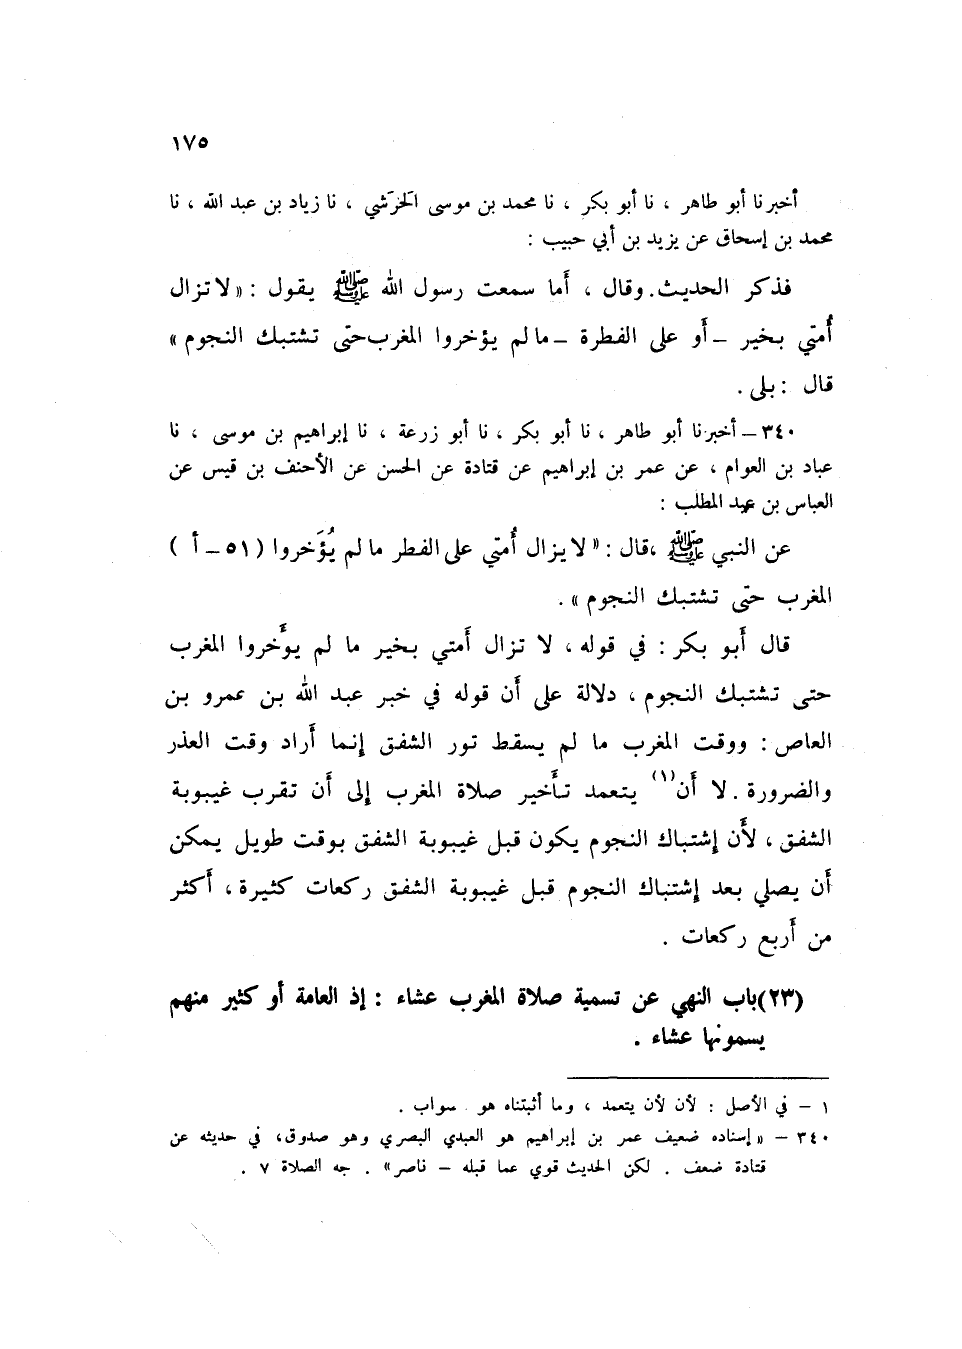 ١٧٥
أخبرنا أبو طاهر ، نا أبو بكر ، نا محمد بن موسى الخَرَشي ، نا زياد بن عبد الله ، نا
محمد بن إسحاق عن يزيد بن أبي حبيب :
فذكر الحديث. وقال ، أَما سمعت رسول الله ﷺ يقول : « لا تزال
أُمتّي بخير – أَو على الفطرة – ما لم يؤخروا المغرب حتّى تشتبك النجوم »
قال : بلى .
٣٤٠ – أخبرنا أبو طاهر ، نا أبو بكر ، نا أبو زرعة ، نا إبراهيم بن موسى ، نا
عباد بن العوام ، عن عمر بن إبراهيم عن قتادة عن الحسن عن الأحنف بن قيس عن
العباس بن عبد المطلب :
عن النبي ﷺ ،قال : « لا يزال أُمتّي على الفطر ما لم يُؤَخروا ( ٥١ – أ )
المغرب حتّى تشتبك النجوم » .
قال أَبو بكر : في قوله ، لا تزال أَمتي بخير ما لم يؤَخروا المغرب
حتى تشتبك النجوم ، دلالة على أَن قوله في خبر عبد الله بن عمرو بن
العاص : ووقت المغرب ما لم يسقط تور الشفق إِنما أَراد وقت العذر
والضرورة . لا أَن(١) يتعمد تأَخير صلاة المغرب إِلى أَن تقرب غيبوبة
الشفق ، لأَن إشتباك النجوم يكون قبل غيبوبة الشفق بوقت طويل يمكن
أَن يصلي بعد إشتباك النجوم قبل غيبوبة الشفق ركعات كثيرة ، أَكثر
من أَربع ركعات .
(٢٣) باب النهي عن تسمية صلاة المغرب عشاء : إذ العامة أو كثير منهم
يسمونها عشاء .
١ – في الأصل : لأن لأن يتعمد ، وما أثبتناه هو سواب .
٣٤٠ – « إسناده ضعيف عمر بن إبراهيم هو العبدي البصري وهو صدوق، في حديثه عن
قتادة ضعف . لكن الحديث قوي عما قبله – ناصر » . جه الصلاة ٧ .